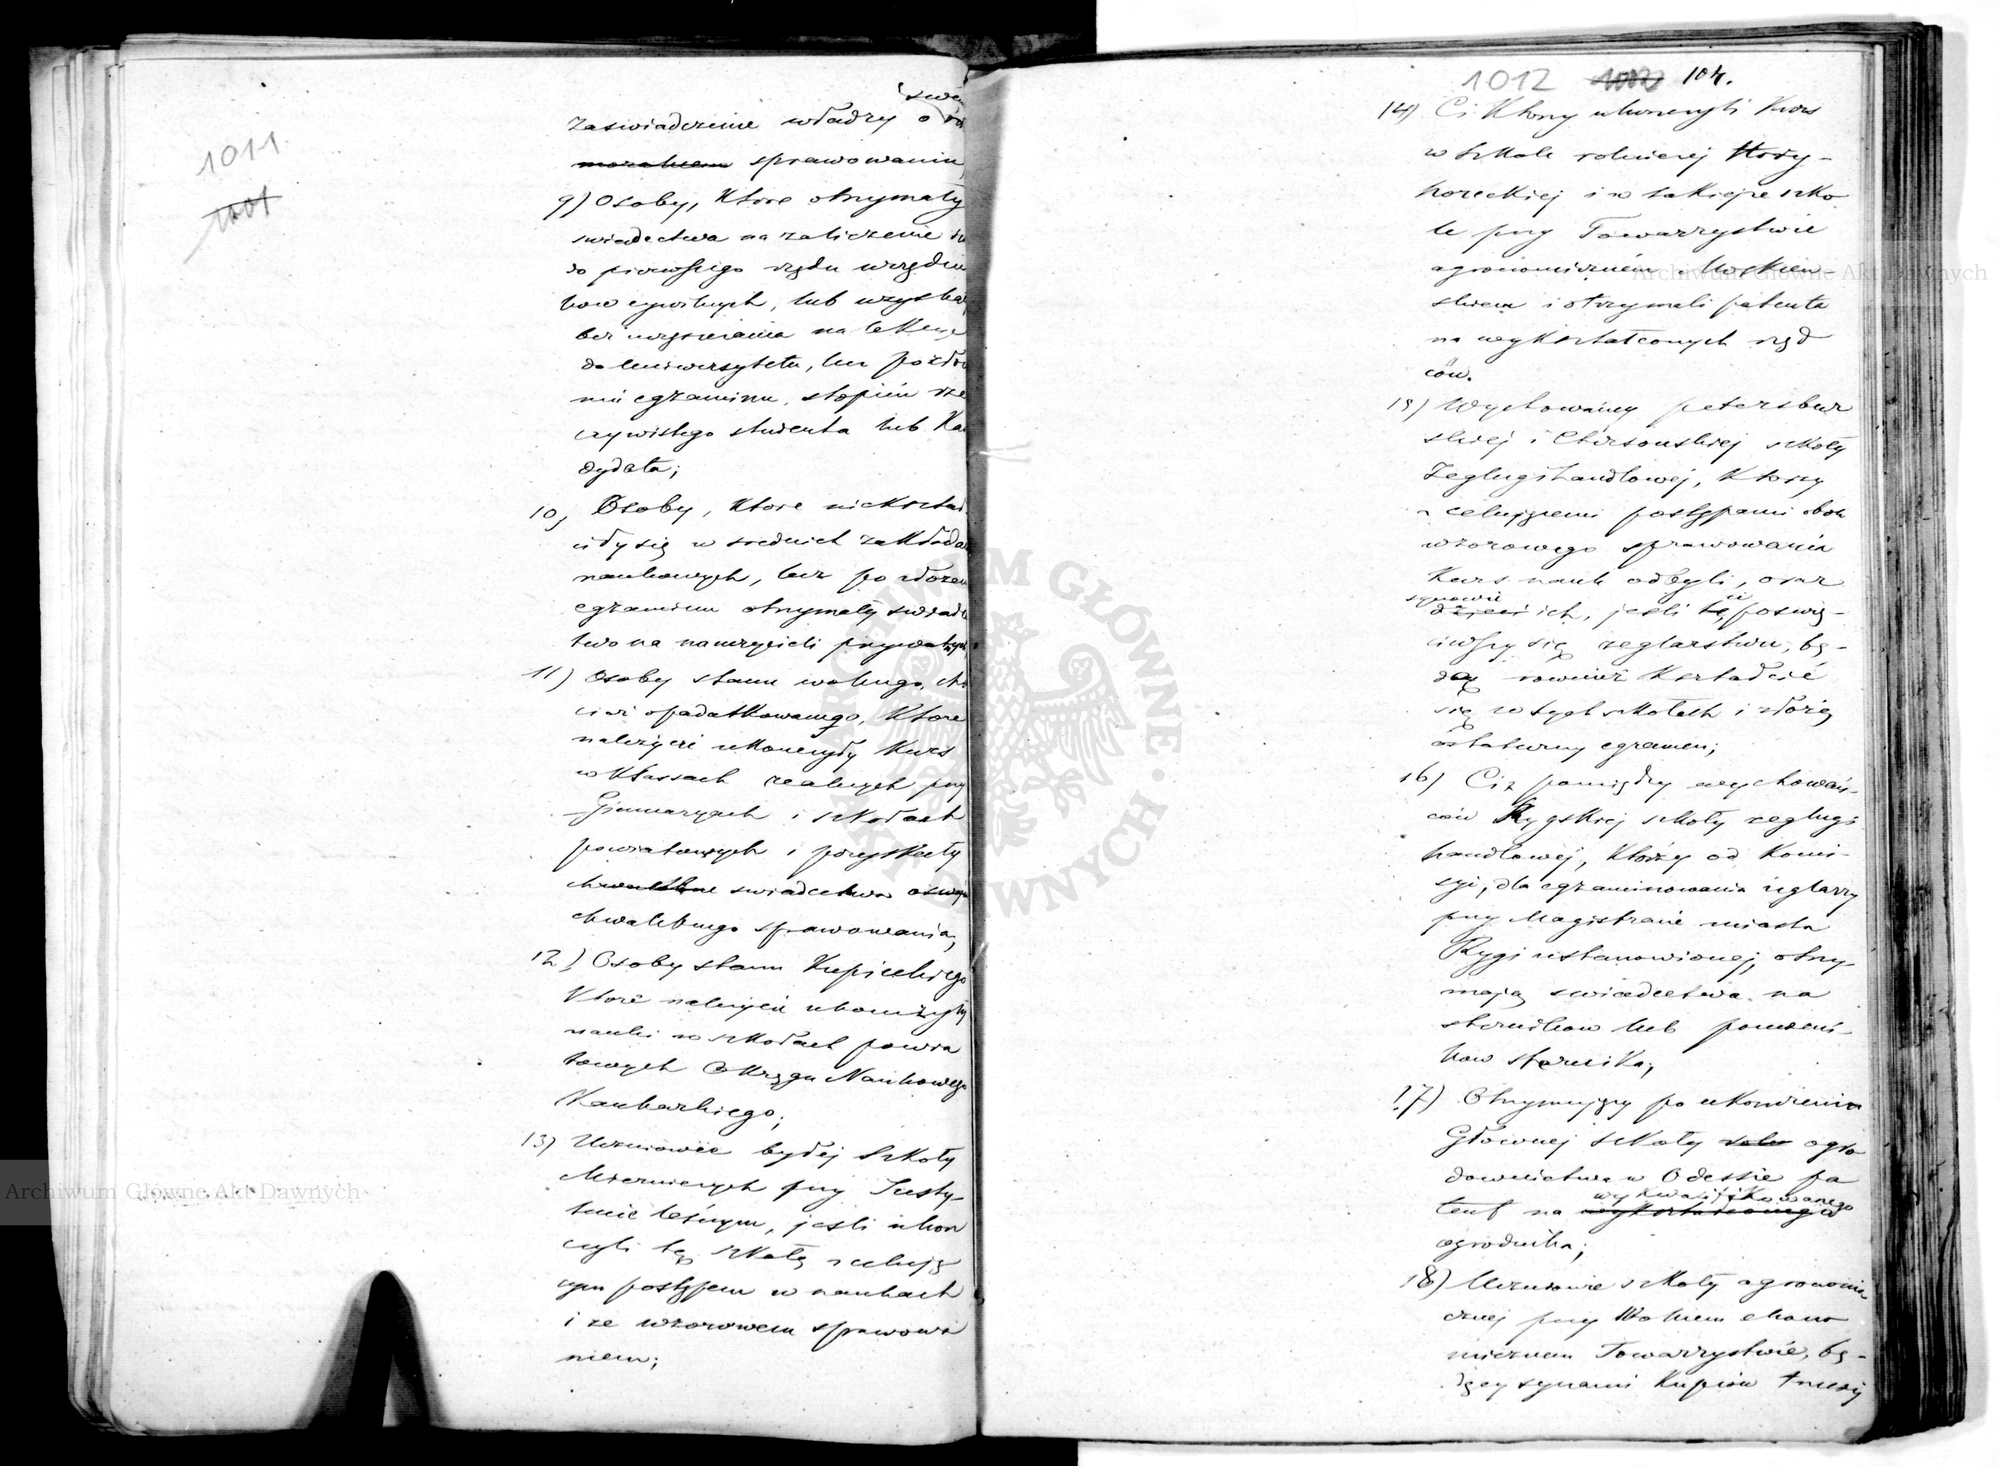 1011
1001
swém
zaswiadczenie władzy o
moralnem sprawowaniu
9) Osoby, Ktore otrzymały
swiadectwa na zaliczenie
do pierwszego rzędu urzędni
kow cywilnych, lub uzyskały
bez uczęszczania na lekcye
do Uniwersytetu, lecz po złoże
niu egzaminu, stopień rze
czywistego studenta lub Kan
dydata;
10) Osoby, Ktore niekształ
ciły się w srednich zakłada
naukowych, lecz po złożen
egzaminu otrzymały swiadec
two na nauczycieli prywatnych
11) Osoby stanu wolnego, cho
ciaż opodatkowanego, Ktore
należycie ukonczyły Kurs
w Klassach realnych przy
Gimnazyach i szkołach
powiatowych i pozyskały
chwalebne swiadectwa o swém
chwalebnego sprawowania;
12) Osoby stanu Kupieckiego
Ktore należycie ukonczyły
nauki w szkołach powia
towych Okręgu Naukowego
Kaukazkiego;
13) Uczniowie byłej Szkoły
Mierniczych przy Insty-
tucie leśnym, jeśli ukon
czyli tę szkołę z celują
cym postępem w naukach
i ze wzorowem sprawowa
niem;
1012 104.
14) Ci Ktorzy ukonczyli Kurs
w szkole rolniczej Hory-
horeckiej i w takiejże szko
le przy Towarzystwie
agronomiczném Moskiew-
skiem i otrzymali patenta
na wykształconych rząd
ców.
15) Wychowańcy petersbur
skiej i Chersonskiej szkoły
Żeglugi handlowej, Ktorzy
z celującemi postępami obok
wzorowego sprawowania
Kurs nauk odbyli, oraz
synowie
dzieci ich, jeśli ci, poswię-
ciwszy się żeglarstwu, bę-
dą rownież Kształcić
się w tych szkołach i złożą
ostateczny egzamen;
16) Ci z pomiędzy wychowań-
ców Rygskiej szkoły żeglugi
handlowej, Ktorzy od Komi-
syi, dla egzaminowania żeglarzy
przy Magistracie miasta
Rygi ustanowionej, otrzy-
mają swiadectwa na
sternikow lub pomocni-
kow sternika;
17) Otrzymujący po ukonczeniu
Głównej szkoły ogro
downictwa w Odessie pa
wykwalifikowanego
tent na wykształconego
ogrodnika;
18) Uczniowie szkoły agronomi
cznej przy Wolnem ekono
micznem Towarzystwie, bę-
dący synami Kupców trzeciej